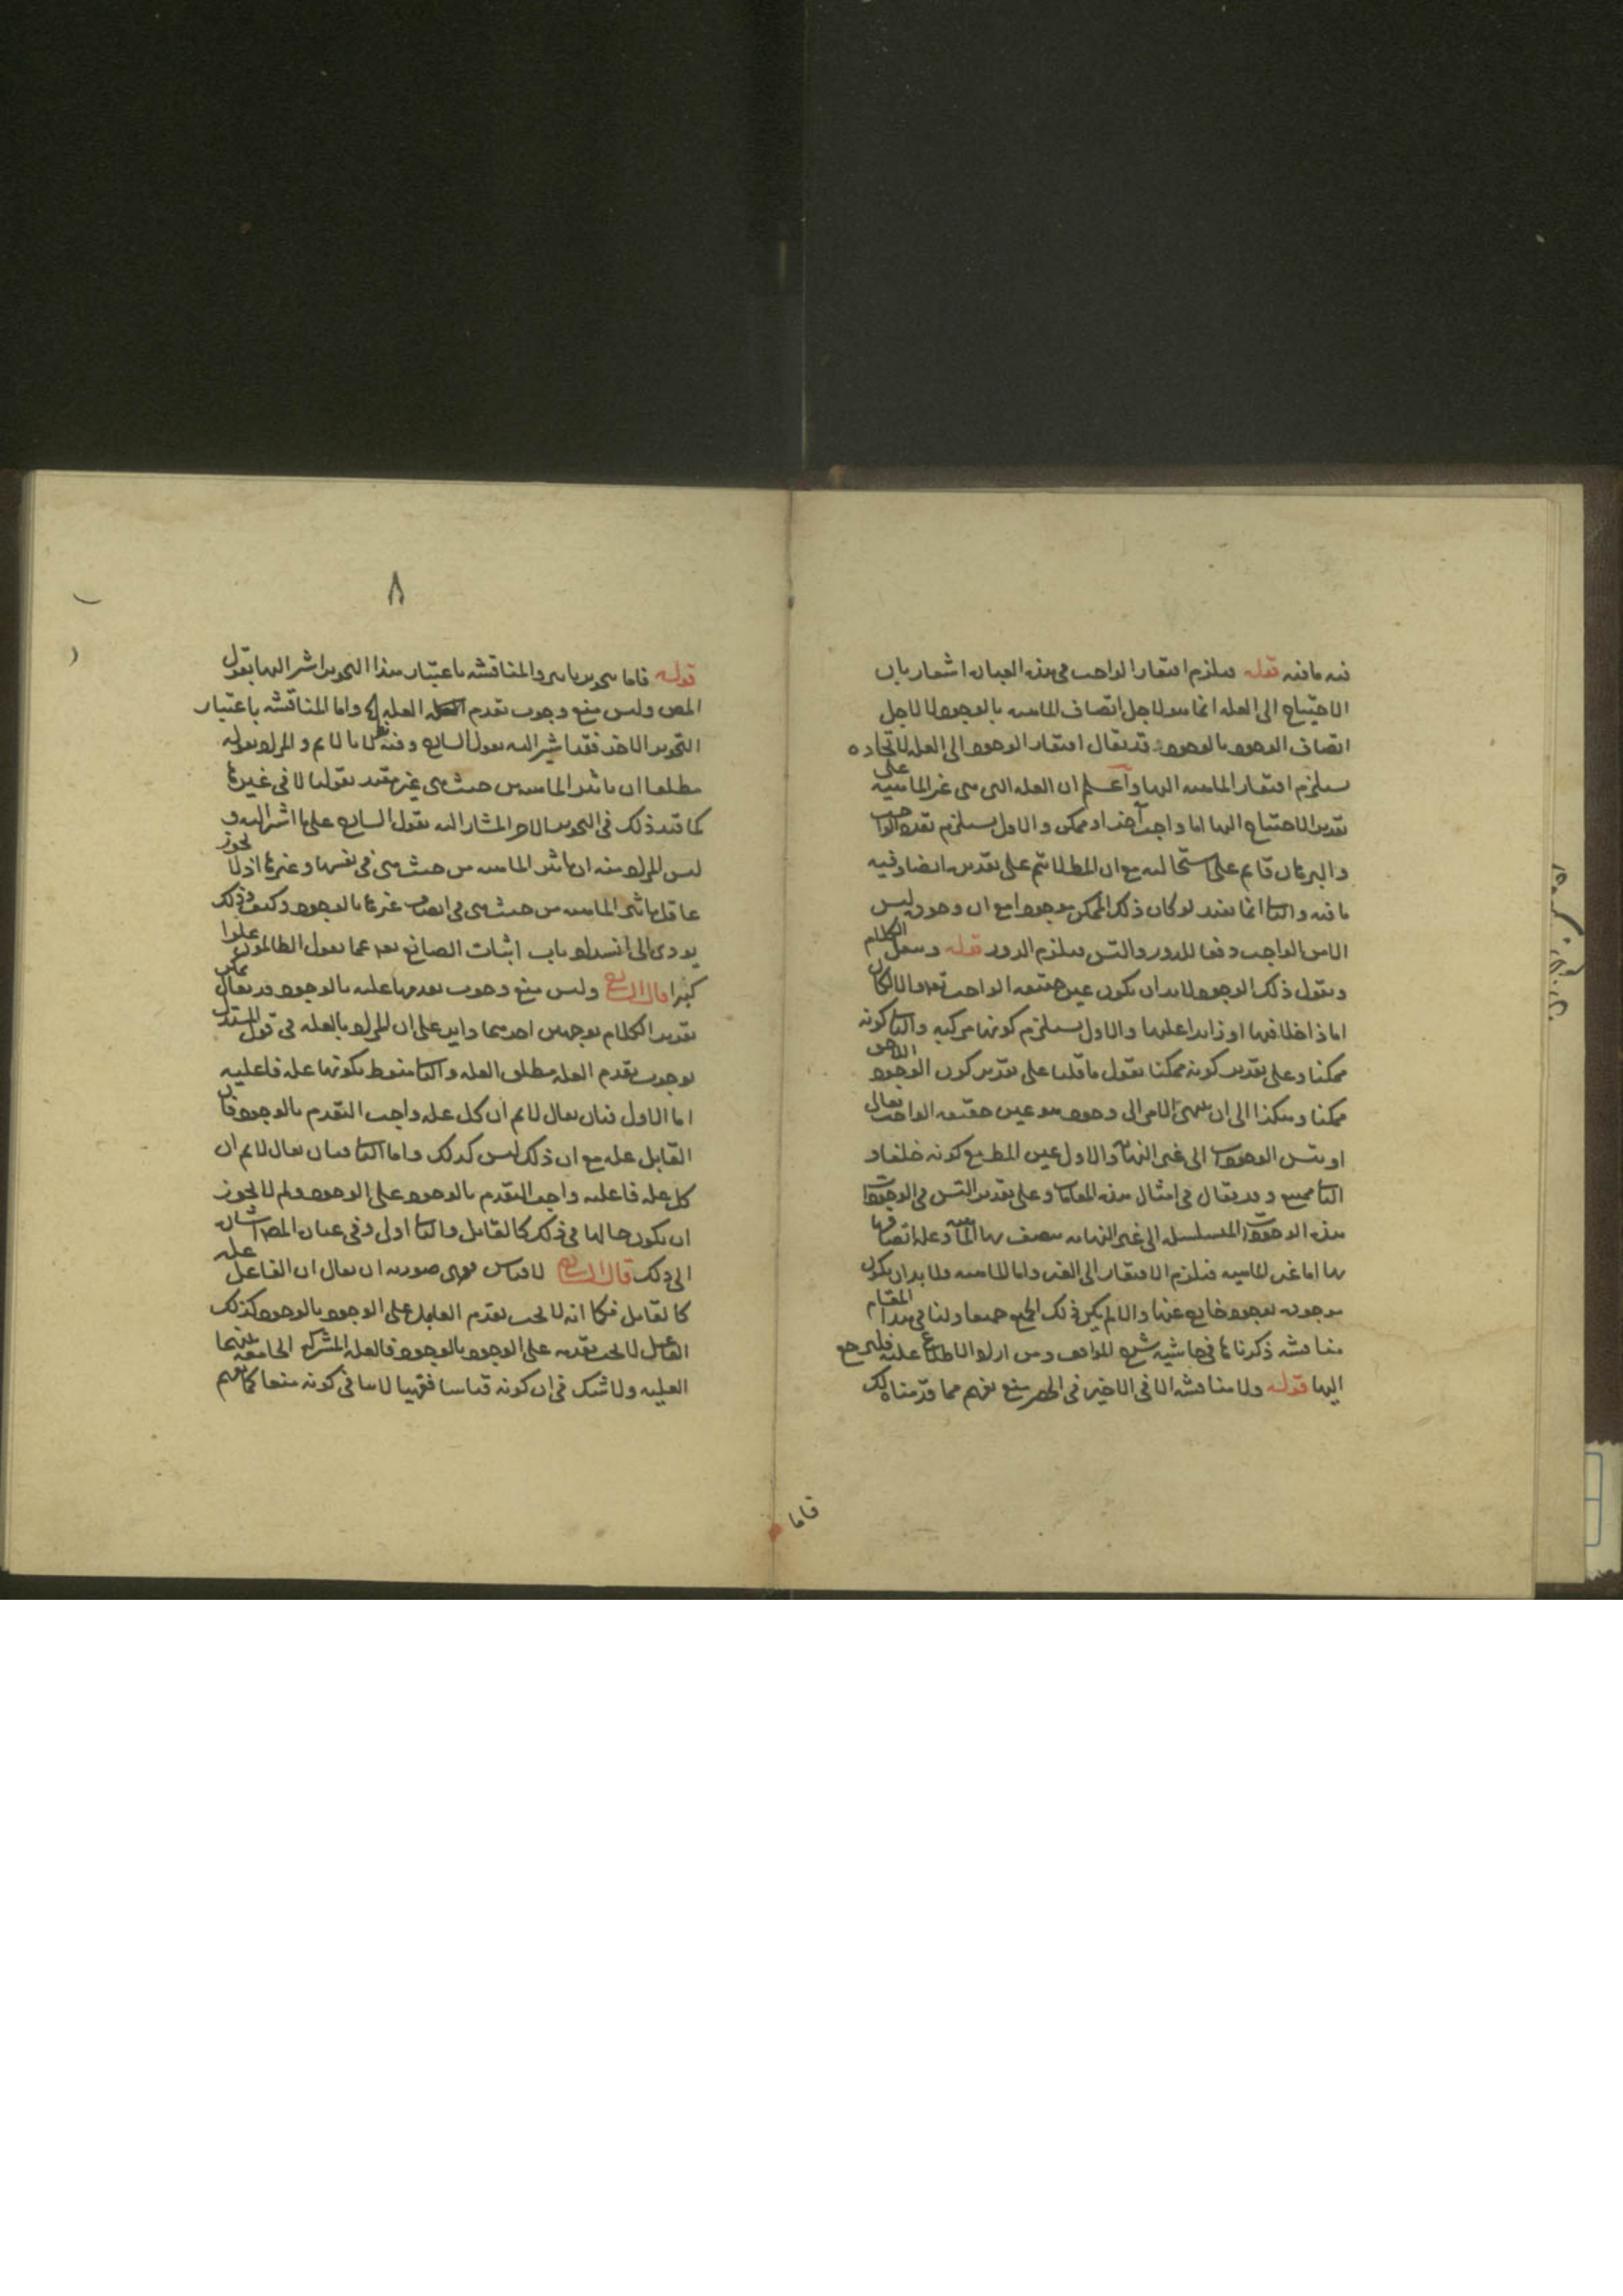 فيه ما فيه قوله فيلزم افتقار الواجب في هذه العبارة اشعار بان
الاحتياج الى العلة انما هو لاجل اتصاف الماهية بالوجود لا لاجل
اتصاف الوجود بالوجود قد يقال افتقار الوجود الى العلة لاتحاده
يستلزم افتقار الماهية اليها واعلم ان العلة التي هي غير الماهية على
تقدير الاحتياج اليها اما واجب آخر او ممكن والاول يستلزم تعدد الواجب
والبرهان قايم على استحالته مع ان المط لا يتم على تقديره ايضا وفيه
ما فيه والثاني انما يفيد لو كان ذلك الممكن موجودا مع ان وجوده ليس
الا من الواجب دفعا للدور والتس فيلزم الدور قوله وننقل الكلام
ونقول ذلك الوجود لا بد ان يكون عين حقيقة الواجب تعالى والا لكان
اما داخلا فيها او زايدا عليها والاول يستلزم كونها مركبة والثاني كونه
ممكنا وعلى تقدير كونه ممكنا نقول ما قلنا على تقدير كون الوجود الاول
ممكنا وهكذا الى ان ينتهي الامر الى وجود هو عين حقيقة الواجب تعالى
او يتس الوجودات الى غير النهاية والاول عين المط مع كونه خلفا و
الثاني ممتنع وقد يقال في امثال هذه المقامات وعلى تقدير التس في الوجودات
هذه الوجودات المتسلسلة الى غير النهاية يتصف بها الماهية وعلة اتصافها
بها اما غير الماهية فيلزم الافتقار الى الغير واما الماهية ولا بد ان يكون
موجودة بوجود خارج عنها والا لم يكن ذلك الجميع جميعا ولنا في هذا المقام
مناقشة ذكرناها في حاشية شرح المواقف ومن اراد الاطلاع عليه فليرجع
اليها قوله ولا مناقشة الا في الاخير في الحصر منع يفهم مما قدمناه لك
فاما
٨
قوله فاما والمناقشة باعتبار هذا التحرير اشير اليها بقول
المص وليس منع وجوب تقدم العلة واما المناقشة باعتبار
التحرير الاخر فقد اشير اليه بقول الشارح وفيه نظر لانا لا نم والمراد بقوله
مطلقا ان تاثير الماهية من حيث هي غير مقيد بقولنا لا في غيرها
كما قيد ذلك في التحرير الاخر المشار اليه بقول الشارح على ما اشير اليه و
ليس المراد منه ان تاثير الماهية من حيث هي في نفسها وغيرها اذ لا يجوز
عاقل تاثير الماهية من حيث هي في اتصاف غيرها بالوجود وكيف وذلك
يودي الى انسداد باب اثبات الصانع تعالى عما يقول الظالمون علوا
كبيرا قال الشارح وليس منع وجوب تقدمها عليه بالوجود قد يقال يمكن
تقرير الكلام بوجهين احدهما داير على ان المراد بالعلة في قول المستدل
بوجوب تقدم العلة مطلق العلة والثاني منوط بكونها علة فاعلية
اما الاول فبان يقال لا نم ان كل علة واجب التقدم بالوجود فان
القابل علة مع ان ذلك ليس كذلك واما الثاني فبان يقال لا نم ان
كل علة فاعلية واجب التقدم بالوجود على الوجود ولم لا يجوز
ان يكون حالها في ذلك كالقابل والثاني اولى وفي عبارة المص اشارة
الى ذلك قال الشارح لا قياس فقهي صورته ان يقال ان الفاعل علة
كالقابل فكما انه لا يجب تقدم القابل على الوجود بالوجود كذلك
الفاعل لا يجب تقدمه على الوجود بالوجود فالعلة المشتركة الجامعة بينهما
العلية ولا شك في ان كونه قياسا فقهيا لا ينافي كونه منعا كما يفهم